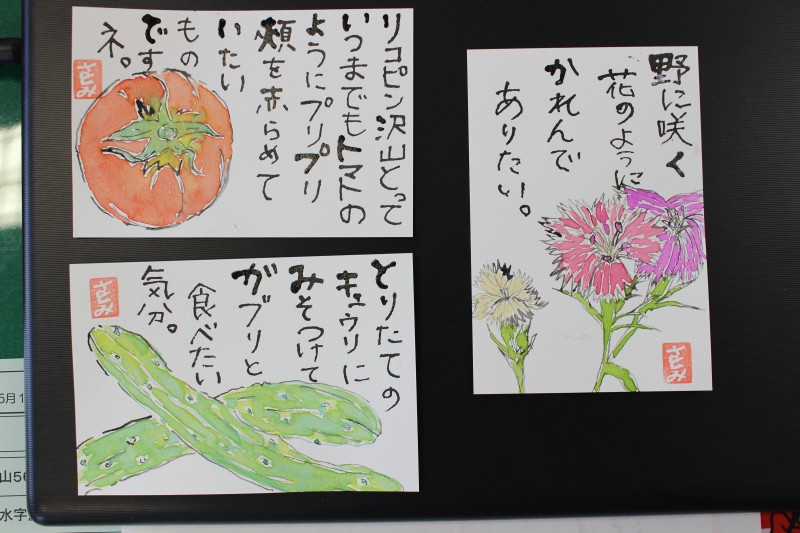 リコピン沢山とって
いつまでもトマトの
ようにプリプリ
頬を赤らめて
いたい
もの
です
ネ。
さとみ
とりたての
キュウリに
みそつけて
ガブリと
食べたい
気分。
さとみ
野に咲く
花のように
かれんで
ありたい。
さとみ
5月1
山56
水字